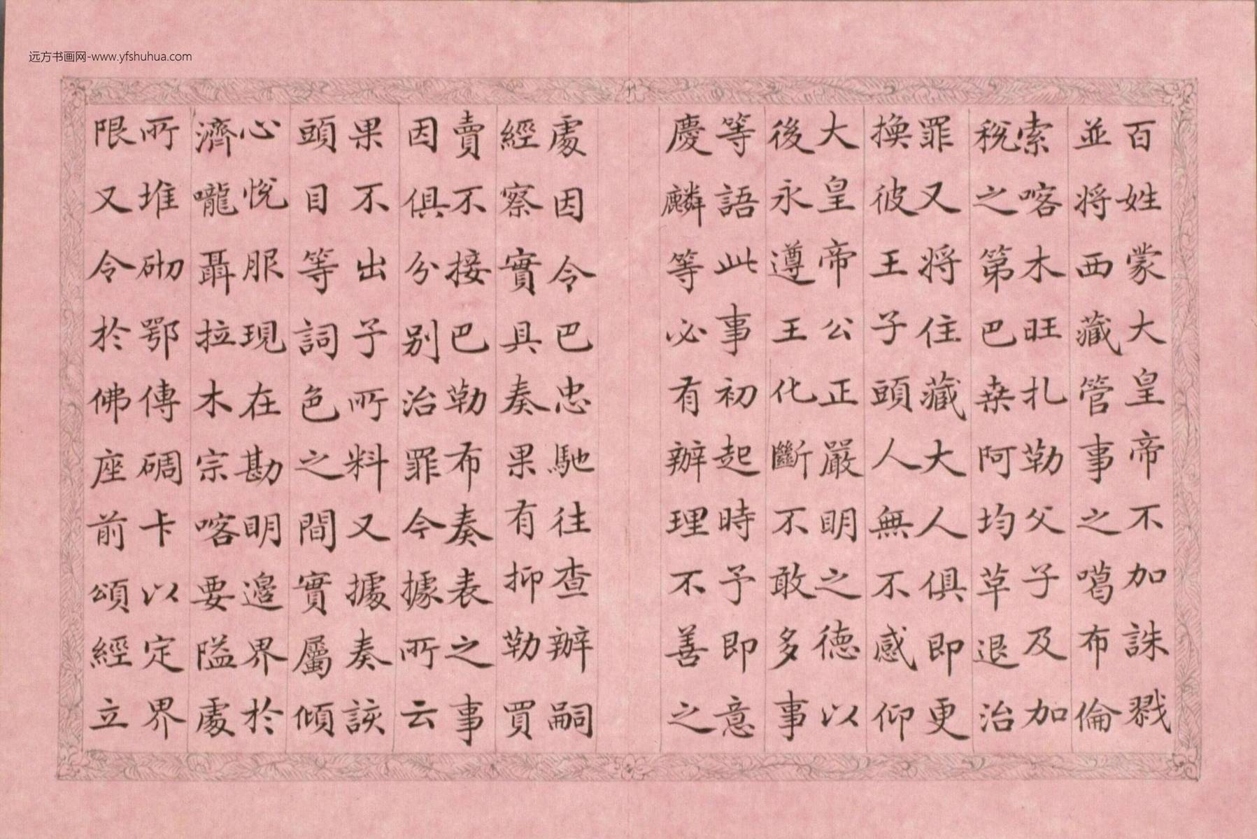 远方书画网-www.yfshuhua.com
百姓蒙大皇帝不加誅戮
並将西藏管事之噶布倫
索喀木旺扎勒父子及加
税之第巴桒阿均草退治
罪又将住藏大人俱即更
換彼王子頭人無不感仰
大皇帝公正嚴明之德以
後永遵王化斷不敢多事
等語此事初起時予即意
慶麟等必有辦理不善之
處因令巴忠馳往查辦嗣
經察實具奏果有抑勒買
賣不接巴勒布奏表之事
因俱分别治罪今據所云
果不出予所料又據奏該
頭目等詞色之間實屬傾
心悅服現在勘明邊界於
濟嚨聶拉木宗喀要隘處
所堆砌鄂傳碉卡以定界
限又令於佛座前頌經立